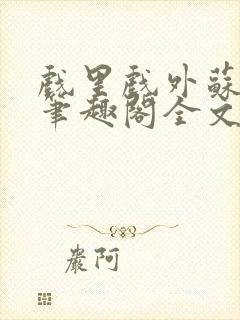 戲里戲外蘇
筆趣閣全文
嚴阿